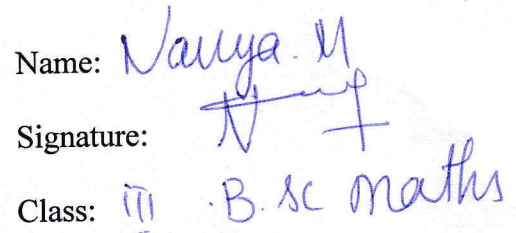 Name: Navya. M
Signature:
Class: III B.sc maths